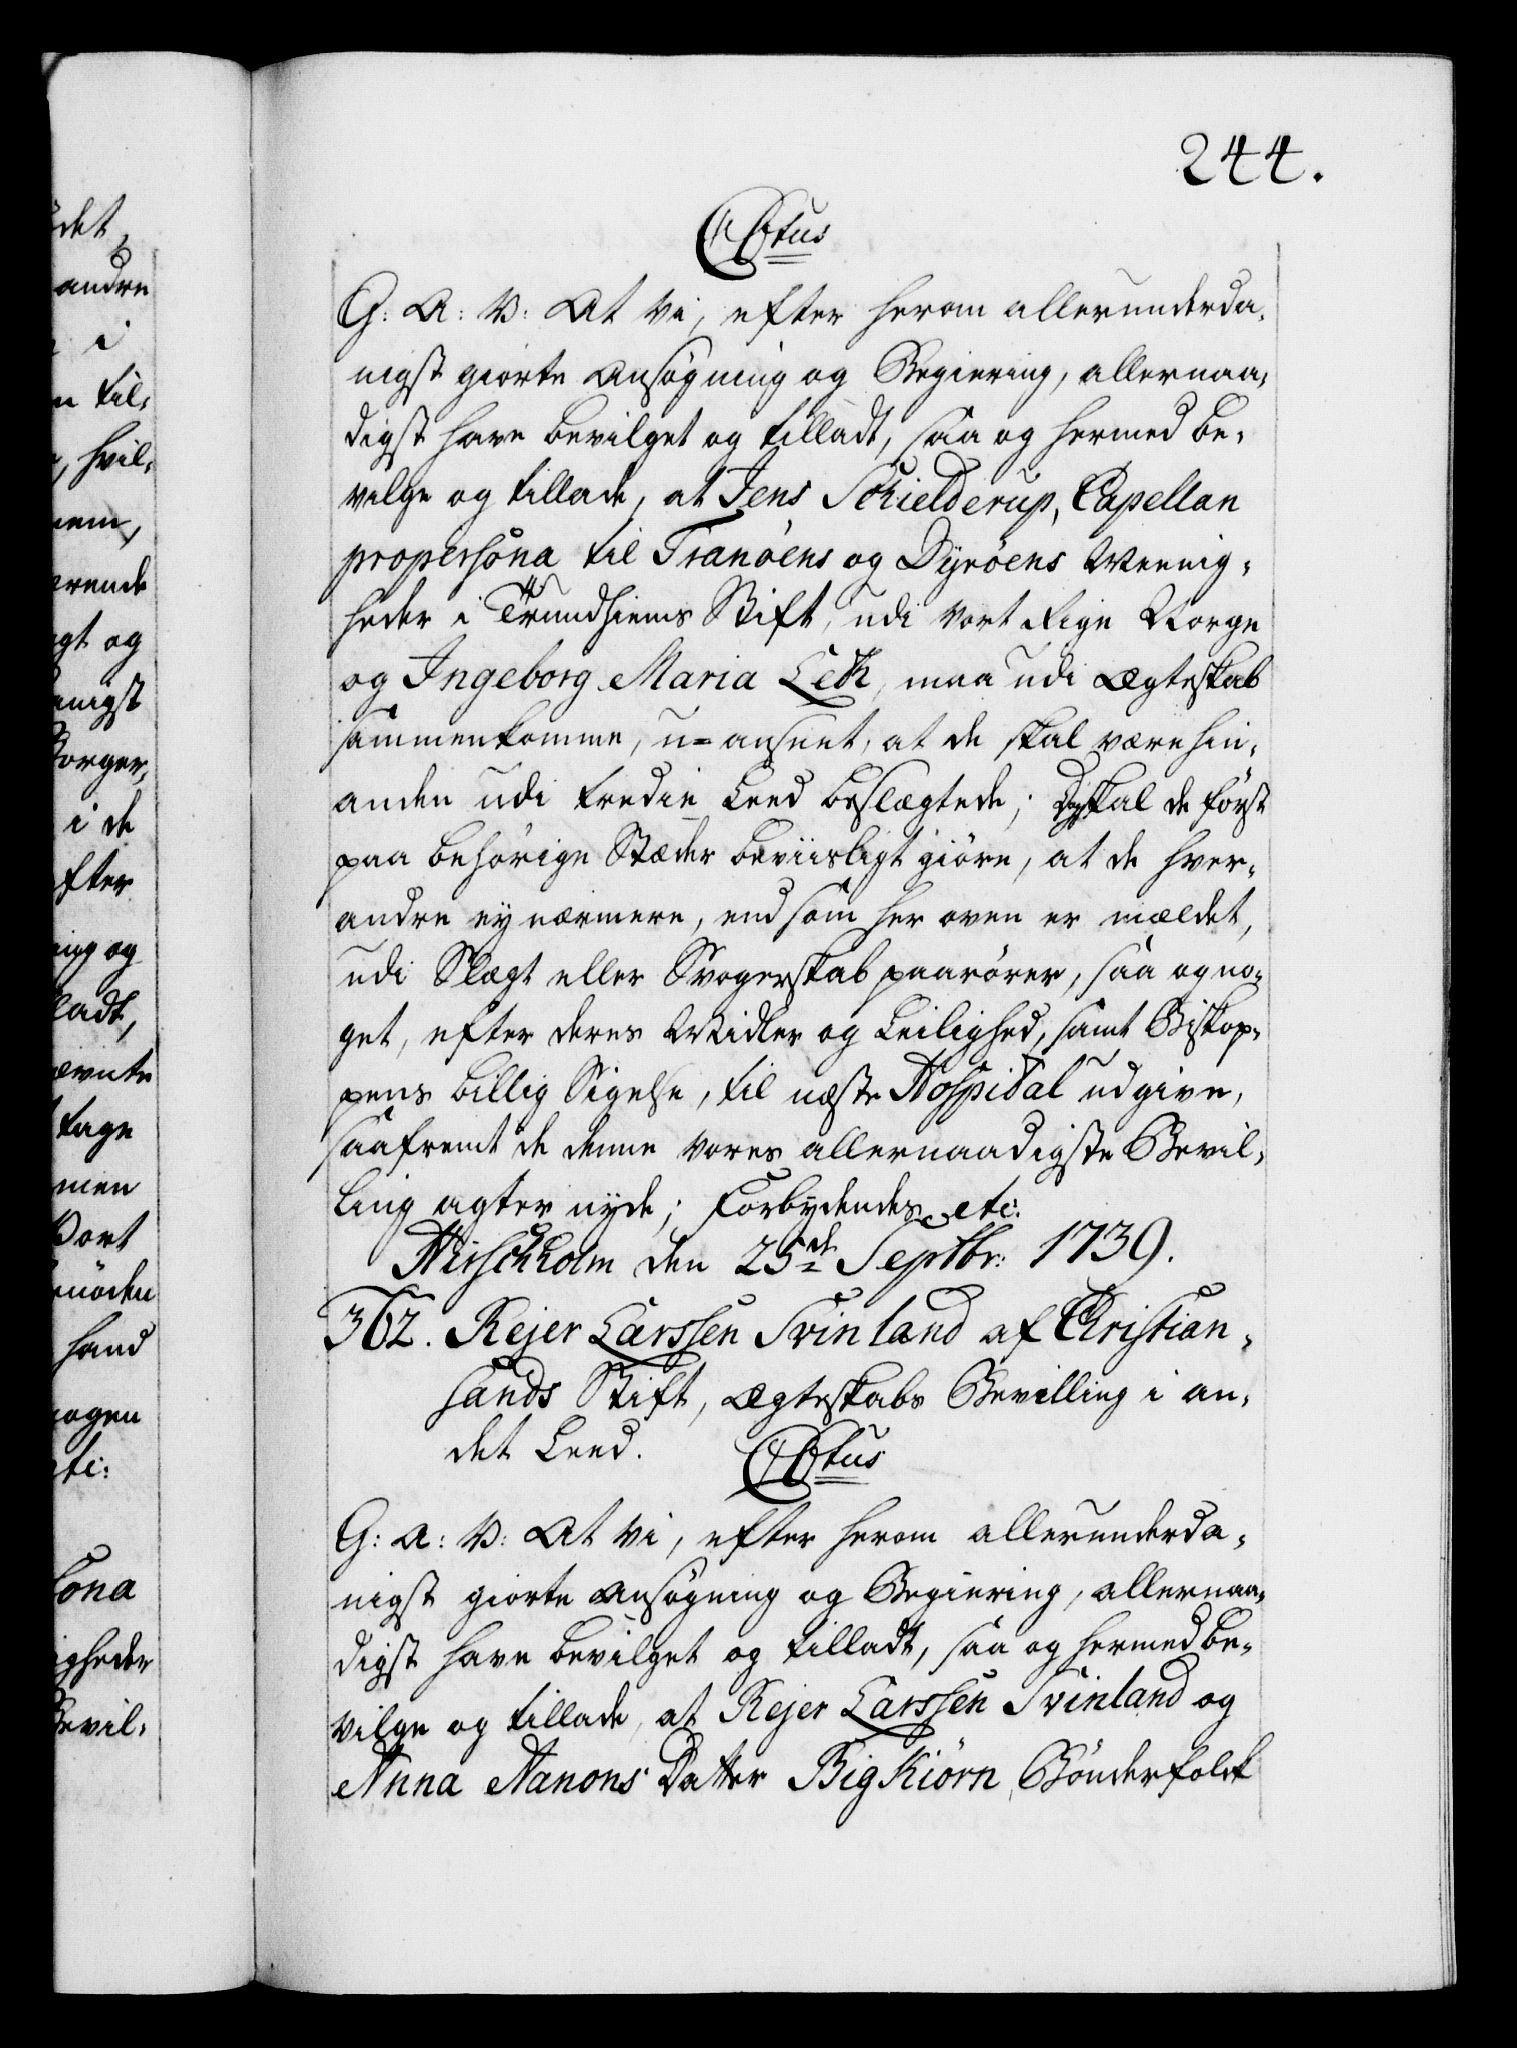 244.
CVtus
G: A: V: At vi, efter herom allerunderda-
nigst giorte Ansøgning og Begiering, allernaa-
digst have bevilget og tilladt, saa og hermed be-
vilge og tillade, at Jens Schielderup, Capellan
propersona til Tranøens og Dyrøens Meenig-
heder i Trundhiems Stift, udi vort Rige Norge
og Ingeborg Maria Leth, maa udi Ægteskab
sammenkomme, u-anseet, at de skal være hin-
anden udi tredie Leed beslægtede; Dog skal de først
paa behørige Stæder beviisligt giøre, at de hver-
andre ey nærmere, end som her oven er meldet,
udi Slægt eller Svogerskab paarører, saa og no-
get, efter deres Midler og Leilighed, samt Biskop-
pens billig Sigelse, til næste Hospital udgive,
saafremt de denne vores allernaadigste Bevil-
ling agter nyde; Forbydendes etc:
Hirschholm den 25de Septbr: 1739.
362. Rejer Larssen Svinland af Christian-
sands Stift, Ægteskabs Bevilling i an-
det Leed.
CVtus
G: A: V: At vi, efter herom allerunderda-
nigst giorte Ansøgning og Begiering, allernaa-
digst have bevilget og tilladt, saa og hermed be-
vilge og tillade, at Rejer Larssen Svinland og
Anna Aanons Datter Bigkiørn, Bønderfolk
det
andre
i
til-
, hvil-
erende
gt og
nigst
Borger,
i de
efter
ing og
ladt,
ævnte
tage
men
Vort
haand
nogen
etc:
sona
igheder
Bevil-